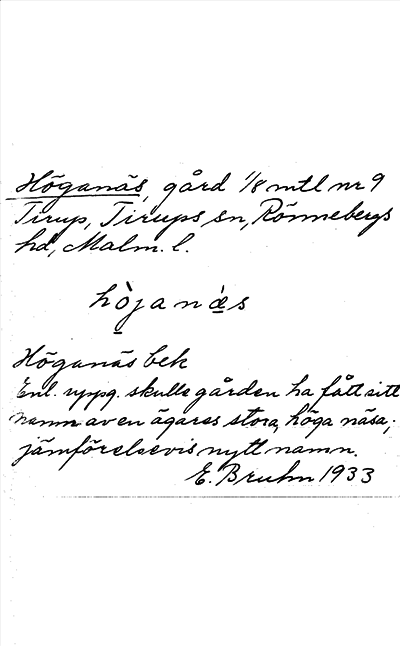 Höganäs, gård 1/8 mtl nr 9
Tirup, Tirups sn, Rönnebergs
hd, Malm. l.
hò̲janæ̲̀s
Höganäs bek
Enl. uppg. skulle gården ha fått sitt
namn av en ägares stora, höga näsa;
jämförelsevis nytt namn.
E. Bruhn 1933